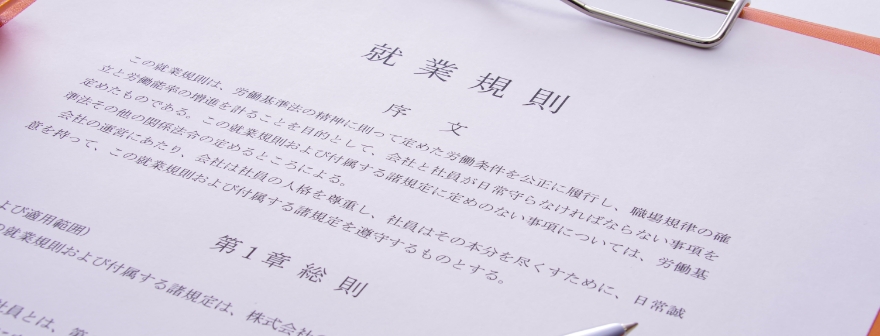 就業規則
序 文
この就業規則は、労働基準法の精神に則って定めた労働条件を公正に履行し、職場規律の確
立と労働能率の増進を計ることを目的として、会社と社員が日常守らなければならない事項を
定めたものである。この就業規則および付属する諸規定に定めのない事項については、労働基
準法その他の関係法令の定めるところによる。
会社の運営にあたり、会社は社員の人格を尊重し、社員はその本分を尽くすために、日常誠
意を持って、この就業規則および付属する諸規定を遵守するものとする。
第1章 総 則
よび適用範囲)
の就業規則および付属する諸規定は、株式会社の
社員とは、第